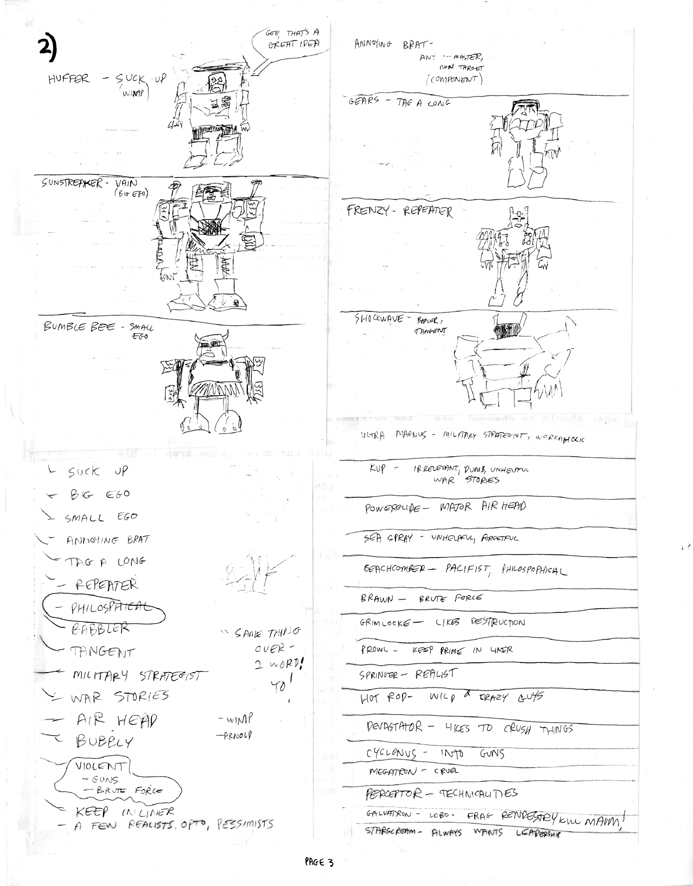 2)
GEE, THAT'S A
GREAT IDEA
HUFFER - SUCK UP
(WIMP)
SUNSTREAKER - VAIN
(BIG EGO)
BUMBLE BEE - SMALL
EGO
ANNOYING BRAT -
ANY ... MASTER,
NON TARGET
(COMPONENT)
GEARS - TAG A LONG
FRENZY - REPEATER
SHOCKWAVE -
TANGENT
- SUCK UP
- BIG EGO
- SMALL EGO
- ANNOYING BRAT
- TAG A LONG
- REPEATER
- PHILOSPHICAL
- BABBLER
- TANGENT
- MILITARY STRATEGIST
- WAR STORIES
- AIR HEAD
- BUBBLY
VIOLENT
- GUNS
- BRUTE FORCE
- KEEP IN LINER
- A FEW REALISTS, OPTO, PESSIMISTS
SAME THING
OVER -
2 WORD!
YO!
- WIMP
- ARNOLD
ULTRA MAGNUS - MILITARY STRATEGIST, WORKAHOLIC
KUP - IRRELEVANT, DUMB, UNHELPFUL
WAR STORIES
POWERGLIDE - MAJOR AIR HEAD
SEA SPRAY - UNHELPFUL, FORGETFUL
BEACHCOMBER - PACIFIST, PHILOSPOPHICAL
BRAWN - BRUTE FORCE
GRIMLOCKE - LIKES DESTRUCTION
PROWL - KEEP PRIME IN LINER
SPRINGER - REALIST
HOT ROD - WILD & CRAZY GUYS
DEVASTATOR - LIKES TO CRUSH THINGS
CYCLONUS - INTO GUNS
MEGATRON - CRUEL
PERCEPTOR - TECHNICALITIES
GALVATRON - LOBO - FRAG KILL MAIM!
STARSCREAM - ALWAYS WANTS LEADERSHIP
PAGE 3